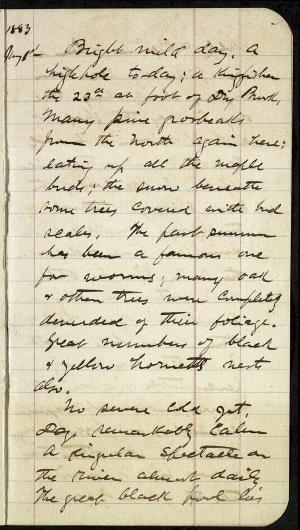 1883
Bright mild day, a
highhole to-day; a Kingfisher
the 23d at foot of Dry Brook,
Many pine grosbeaks
from the north again here;
eating up all the maple
buds; the snow beneath
some trees covered with bud
scales. The past summer
has been a famous one
for worms; many oak
& other trees were completely
denuded of their foliage.
Great numbers of black
& yellow hornetts nests
also.
No severe cold yet.
Days remarkably calm
A singular spectacle on
the river almost daily,
The great black pool lies